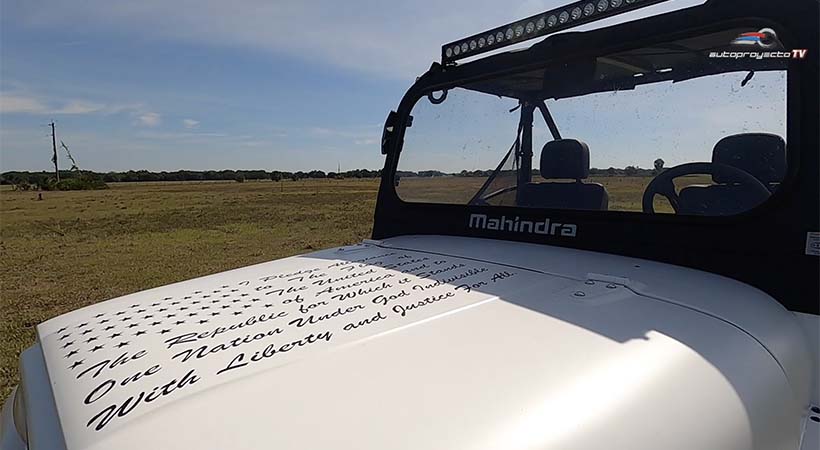 autoproyecto TV
Mahindra
I Pledge Allegiance
to The Flag of
The United States
of America and to
The Republic for Which it Stands
One Nation Under God Indivisible
With Liberty and Justice For All.